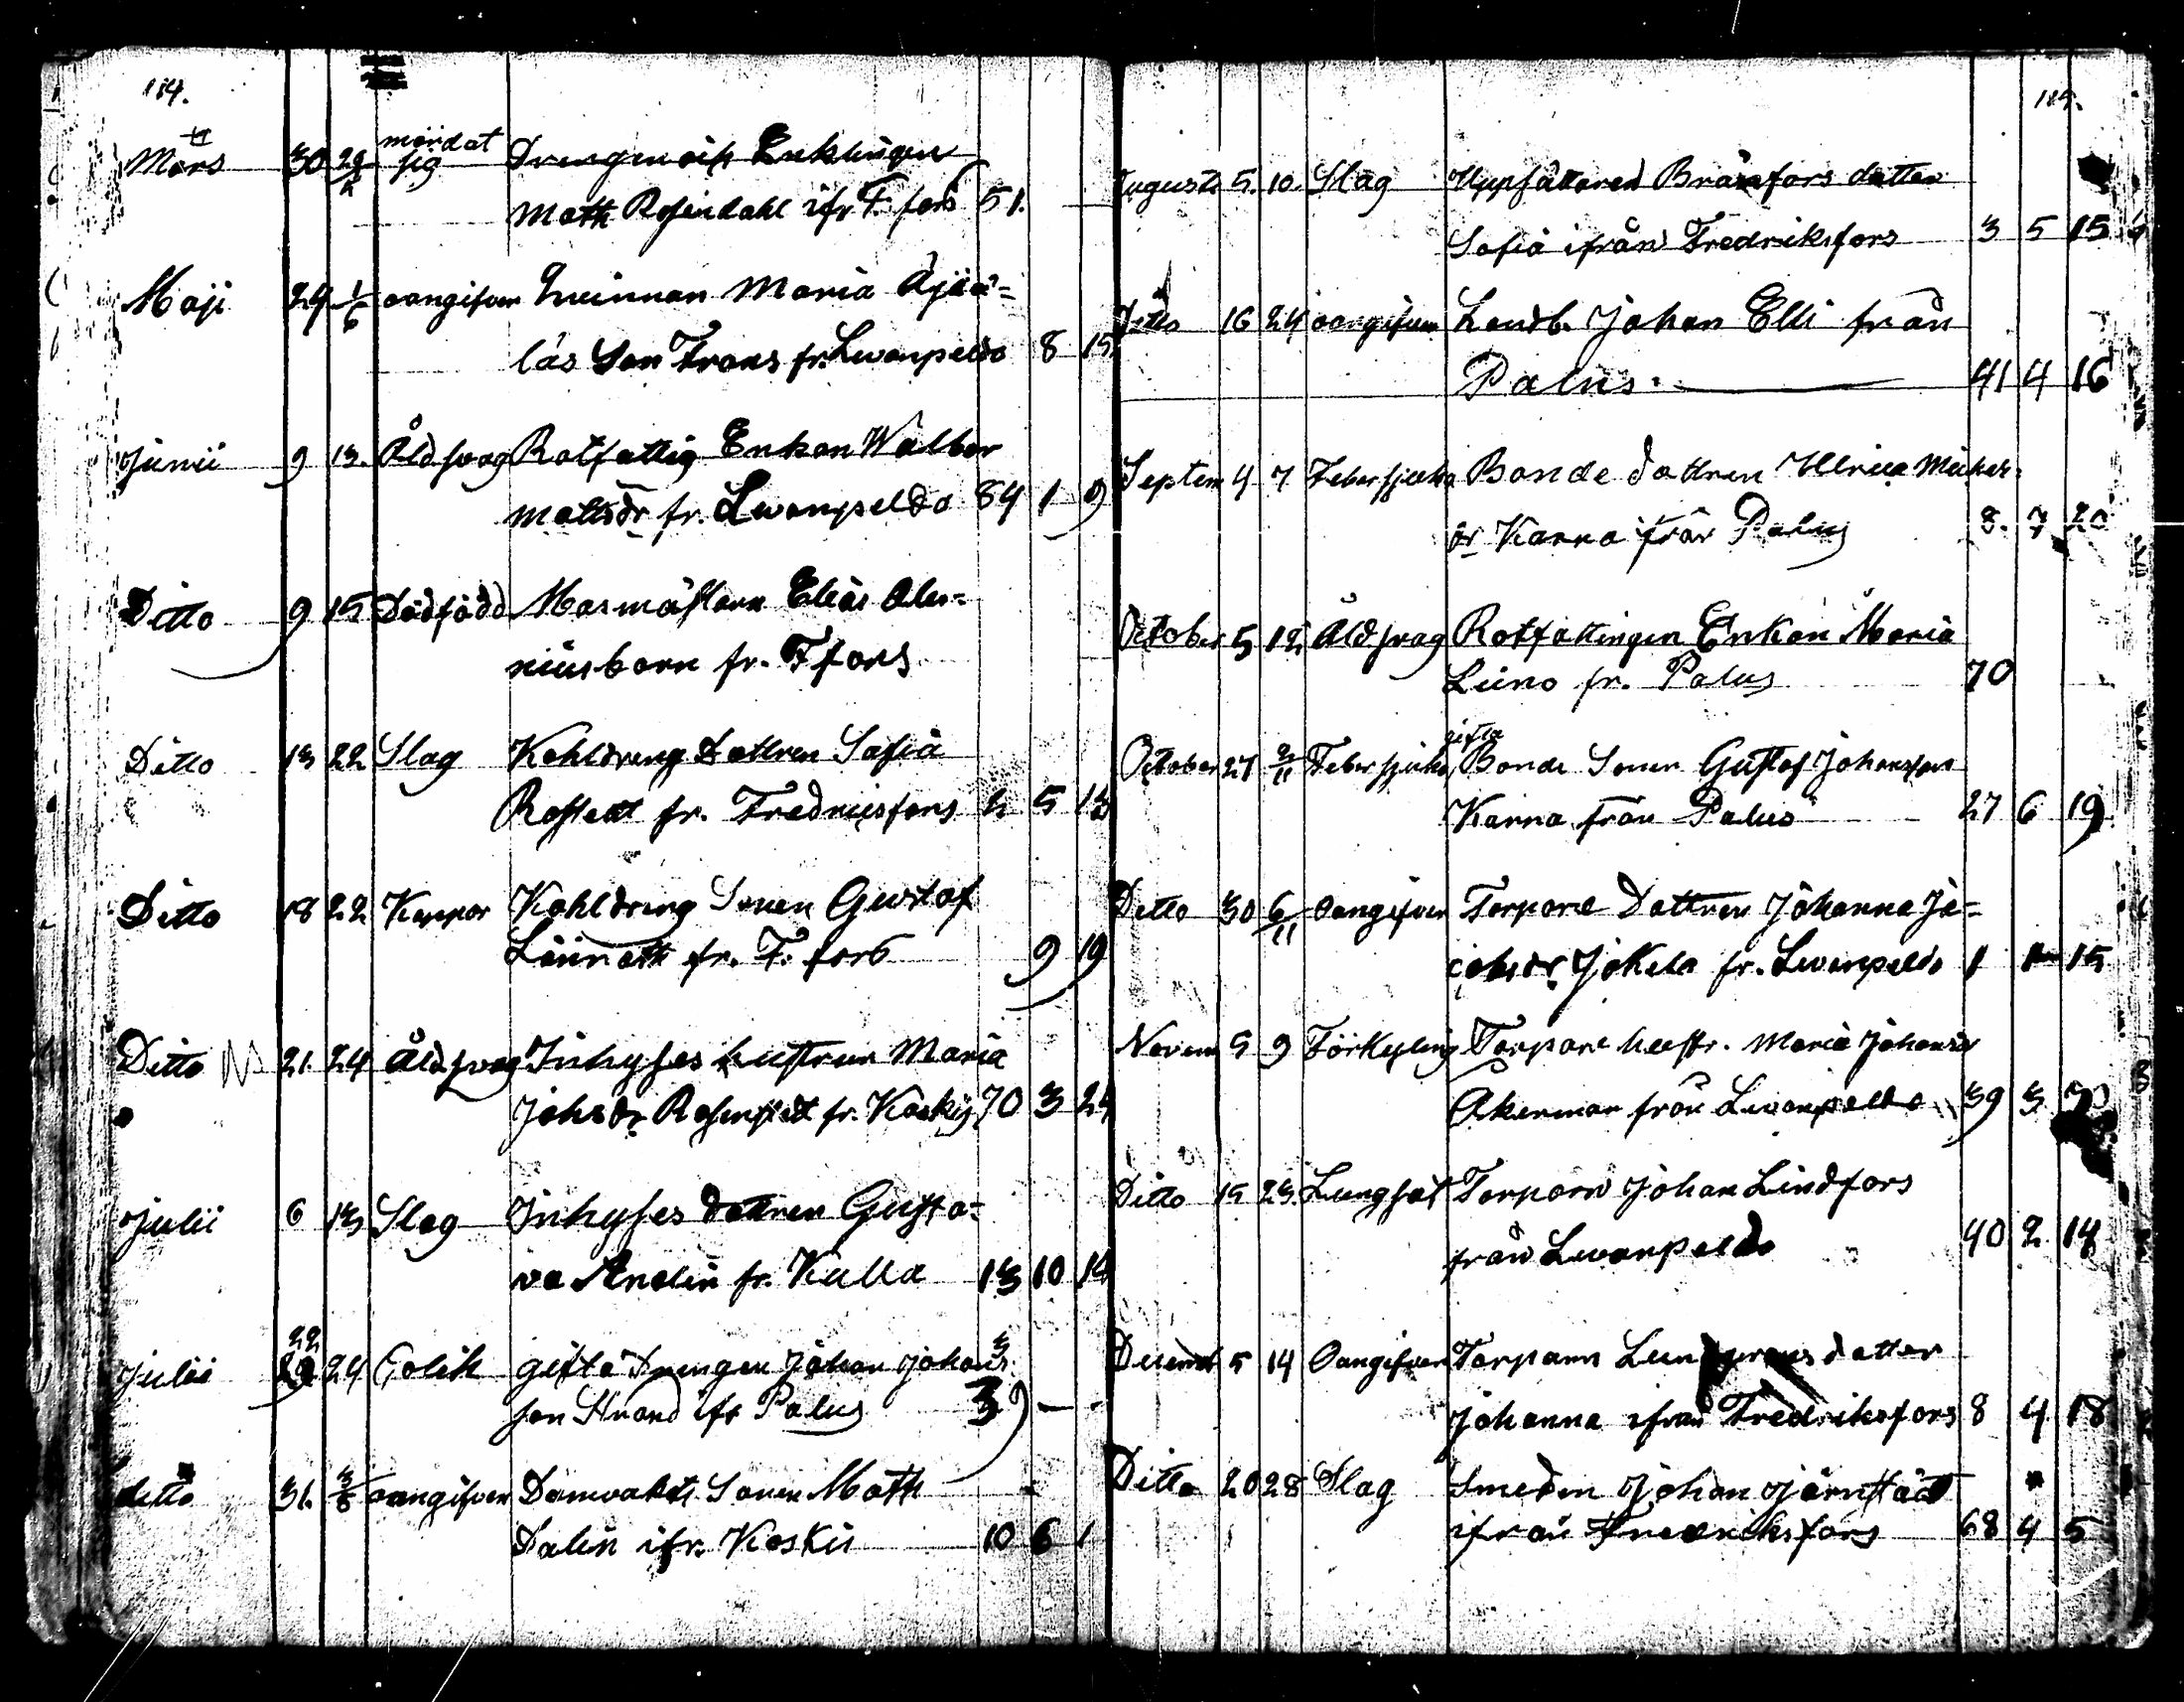 114.
Mars 30 29/5 mördat sig Drengen och Enklingen
Math Rosendahl ifr. F. fors 51.
Maji 29 1/6 oangifven Qvinnan Maria
läs Son Frans fr. Levanpeldo 8 15
Junii 9 13. Åldsvag Rotfattig Enkan Walbor
Mattsdr fr. Levanpeldo 84 1 9
Ditto 9 15 Dödfödd Masmästaren Elias Ale-
niusbarn fr. F fors
Ditto 13 22 Slag Kohldreng Dottren Sofia
fr. Fredricsfors 2 5 13
Ditto 18 22 Koppor Kohldreng Sonen Gustaf
Lönnroth fr. F. fors 9 19
Ditto 21. 24 Åldsvag Inhyses hustrun Maria
Johsdr fr. Koskis 70 3 24
Julii 6 13 Slag Inhyses dottren Gusta-
va Andlin fr. Kulla 13 10 14
Julii 22 24 Colik gifta Drengen Johan Johans
son Strand ifr Palus 39 — -
ditto 31. 3/8 oangifven Damvakt Sonen Math
Dalin ifr. Koskis 10 6 1
Augusti 5. 10. Slag Uppsättaren Brännfors dotter
Sofia ifrån Fredriksfors 3 5 15
Ditto 16 24 oangifven Landb. Johan Elli från
Palus. 41 4 16
Septem 4 7 Febersjuka Bonde dottren Ulrica Michels-
dr Karra från Palus 8. 7 20
October 5 12 Åldsvag Rotfattingen Enkan Maria
Leino fr. Palus 70
October 27 2/11 Febersjuka gifta Bonde Sonen Gustaf Johansson
Karra från Palus 27 6 19
Ditto 30 6/11 Oangifven Torpare Dottren Johanna Ja-
cobsdr Jokela fr. Levanpeldo 1 15
Novem 5 9 Förkylning Torpare hustr. Maria Johansdr
Åkerman från Levanpeldo 39 3
Ditto 15 23. Lungsot Torparn Johan Lindfors
från Levanpeldo 40 2 14
Decemb 5 14 Oangifven Torparn Lundgrens dotter
Johanna ifrån Fredriksfors 8 4 18
Ditto 20 28 Slag Smeden Johan Järnstädt
ifrån Fredricksfors 68 4 5